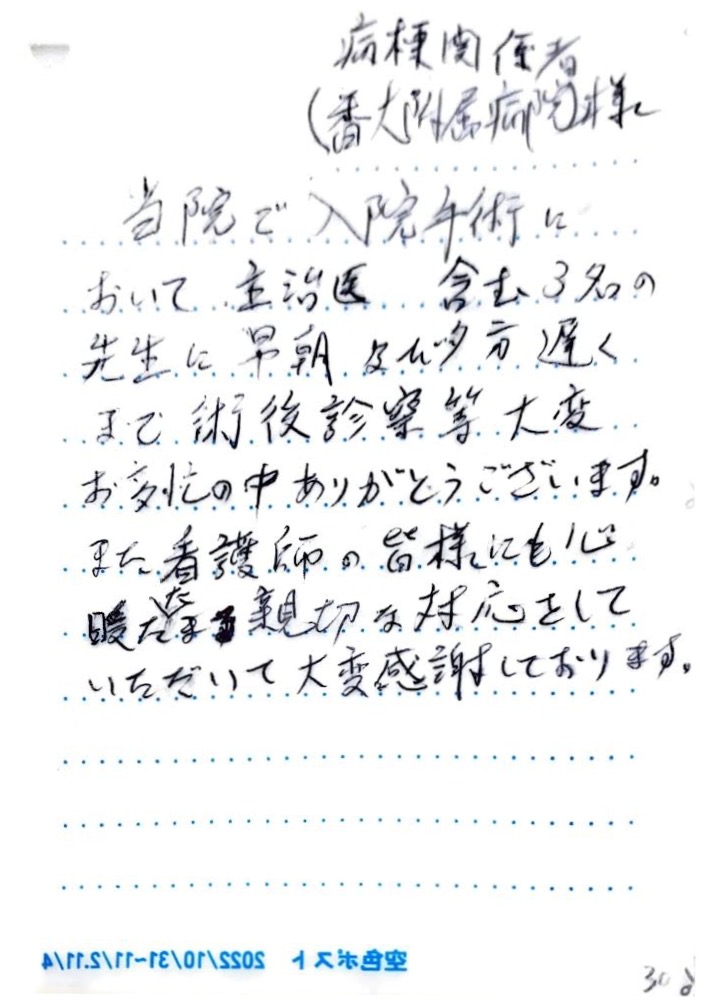 病棟関係者
(香大附属病院)様
当院で入院手術に
おいて主治医 含む3名の
先生に早朝及び夕方遅く
まで術後診察等大変
お多忙の中ありがとうございます。
また看護師の皆様にも心
暖 親切な対応をして
いただいて大変感謝しております。
空色ポスト 2022/10/31~11/2.11/4